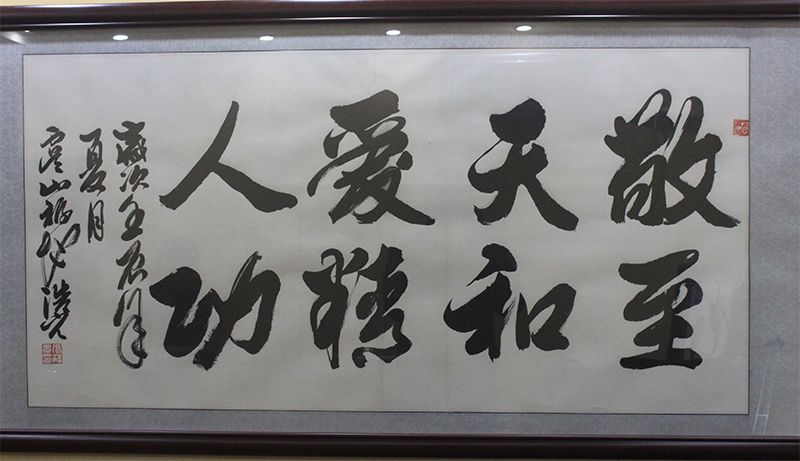 敬天爱人
至和精功
歲次壬辰年
夏月
虞山